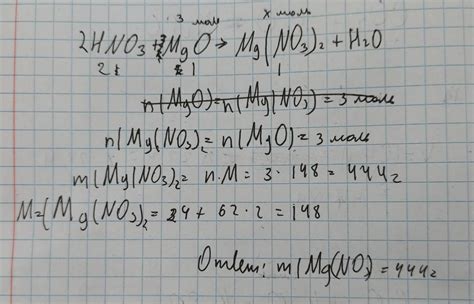 3 моль x моль
2HNO3 + MgO → Mg(NO3)2 + H2O
2 1 1
n(MgO) = n(Mg(NO3) = 3 моль
n(Mg(NO3)2 = n(MgO) = 3 моль
m(Mg(NO3)2 = n·M = 3·148 = 444г
M=(Mg(NO3)2 = 24 + 62·2 = 148
Ответ: m(Mg(NO3) = 444г